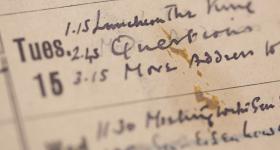 1.15 Luncheon The King
Tues. 2.45 Questions
15 3.15 Move Address to
Wed 11 30 Meeting with Gen
Gen Eisenhower